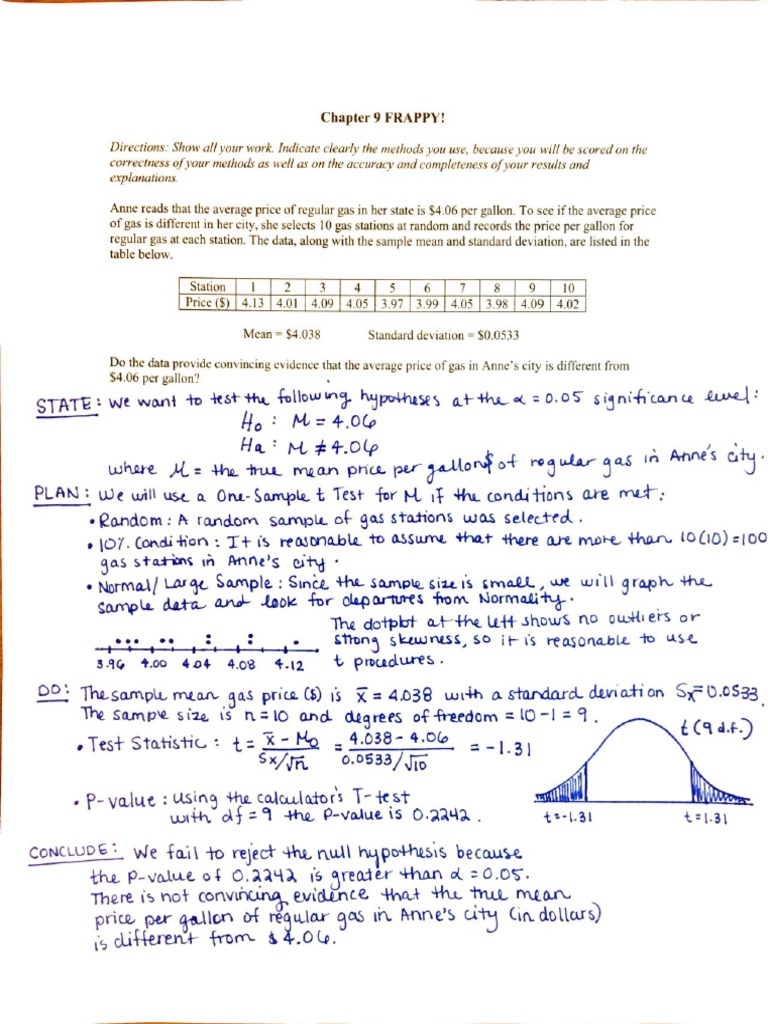 Chapter 9 FRAPPY!
Directions: Show all your work. Indicate clearly the methods you use, because you will be scored on the
correctness of your methods as well as on the accuracy and completeness of your results and
explanations.
Anne reads that the average price of regular gas in her state is $4.06 per gallon. To see if the average price
of gas is different in her city, she selects 10 gas stations at random and records the price per gallon for
regular gas at each station. The data, along with the sample mean and standard deviation, are listed in the
table below.
Station 1 2 3 4 5 6 7 8 9 10
Price ($) 4.13 4.01 4.09 4.05 3.97 3.99 4.05 3.98 4.09 4.02
Mean = $4.038 Standard deviation = $0.0533
Do the data provide convincing evidence that the average price of gas in Anne's city is different from
$4.06 per gallon?
STATE: We want to test the following hypotheses at the α = 0.05 significance level:
H₀ : μ = 4.06
Ha : μ ≠ 4.06
where μ = the true mean price per gallon $ of regular gas in Anne's city.
PLAN: We will use a One-Sample t Test for μ if the conditions are met:
• Random: A random sample of gas stations was selected.
• 10% Condition: It is reasonable to assume that there are more than 10(10) = 100
gas stations in Anne's city.
• Normal/Large Sample: Since the sample size is small, we will graph the
sample data and look for departures from Normality.
The dotplot at the left shows no outliers or
strong skewness, so it is reasonable to use
t procedures.
3.96 4.00 4.04 4.08 4.12
DO: The sample mean gas price ($) is x̄ = 4.038 with a standard deviation Sx = 0.0533.
The sample size is n = 10 and degrees of freedom = 10 - 1 = 9.
• Test Statistic: t = x̄ - μ₀ / Sx/√n = 4.038 - 4.06 / 0.0533/√10 = -1.31
t (9 d.f.)
t = -1.31 t = 1.31
• P-value: Using the calculator's T-test
with df = 9 the P-value is 0.2242.
CONCLUDE: We fail to reject the null hypothesis because
the P-value of 0.2242 is greater than α = 0.05.
There is not convincing evidence that the true mean
price per gallon of regular gas in Anne's city (in dollars)
is different from $4.06.